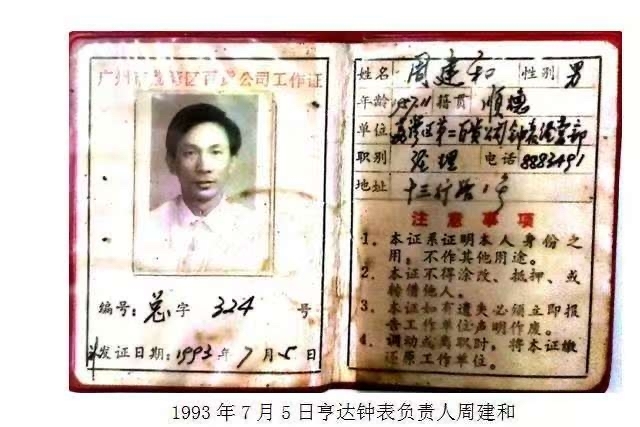 广州市荔湾区百货公司工作证
编号:总字 324 号
发证日期:1993年7月5日
姓名 周建和 性别 男
年龄 1957.11 籍贯 顺德
单位 荔湾区第二百货公司钟表经营部
职别 经理 电话 8883491
地址 十三行路1号
注意事项
1. 本证系证明本人身份之
用,不作其他用途。
2. 本证不得涂改、抵押、或
转借他人。
3. 本证如有遗失必须立即报
告工作单位声明作废。
4. 调动或离职时,将本证缴
还原工作单位。
1993年7月5日亨达钟表负责人周建和